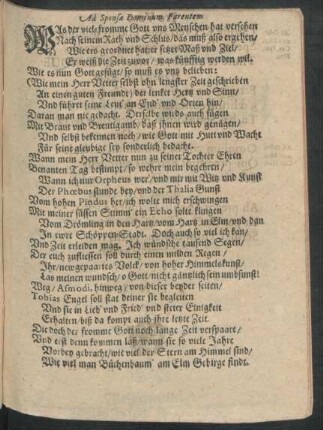 Ad Sponsæ Dominum Parentem
WAs der viel fromme Gott uns Menschen hat versehen
Nach seinem Rath und Schluß/das muß also ergehen/
Wie ers geordnet hat/er setzet Maß und Ziel/
Er weiß die Zeit zuvor/ was künfftig werden wil.
Wie es nun Gott gefügt/so muß es uns belieben:
(Wie mein Herr Vetter selbst ohn lengster Zeit geschrieben
An einen guten Freund) der lenket Hertz und Sinn/
Und führet seine Leut' an End' und Orten hin/
Daran man nie gedacht. Derselbe wird auch fügen
Mit Braut und Breutigamb/ daß ihnen wird genügen/
Und selbst bekennen noch/ wie Gott mit Hut und Wacht
Für seine gleubige sey sonderlich bedacht.
Wann mein Herr Vetter nun zu seiner Tochter Ehren
Benanten Tag bestimpt/so wehre mein begehren/
Wann ich nur Orpheus wer/ und mir mit Witz und Kunst
Der Phœbus stunde bey/und der Thalia Gunst
Vom hohen Pindus her/ich wolte mich erschwingen
Mit meiner süssen Stimm' ein Echo solte klingen
Vom Drömling in den Hartz/vom Hartz in Elm/und dan
In ewre Schöppen-Stadt. Doch auch so viel ich kan/
Und Zeit erleiden mag. Ich wündsche tausend Segen/
Der euch zufliessen soll durch einen milden Regen/
Ihr/newgepaartes Volck/ von hoher Himmelskunst/
Las meinen wundsch/o Gott/nicht gäntzlich sein umbsunst!
Weg/ Asmodi, hinweg/ von dieser beyder seiten/
Tobias Engel soll stat deiner sie begleiten
Und sie in Lieb' und Fried' und steter Einigkeit
Erhalten/biß da kompt auch ihre letzte Zeit.
Die doch der fromme Gott noch lange Zeit verspaare/
Und erst denn kommen laß/wann sie so viele Jahr
Vorbey gebracht/wie viel der Stern am Himmel sind/
Wie viel man Büchenbaum' am Elm Gebirge findt.